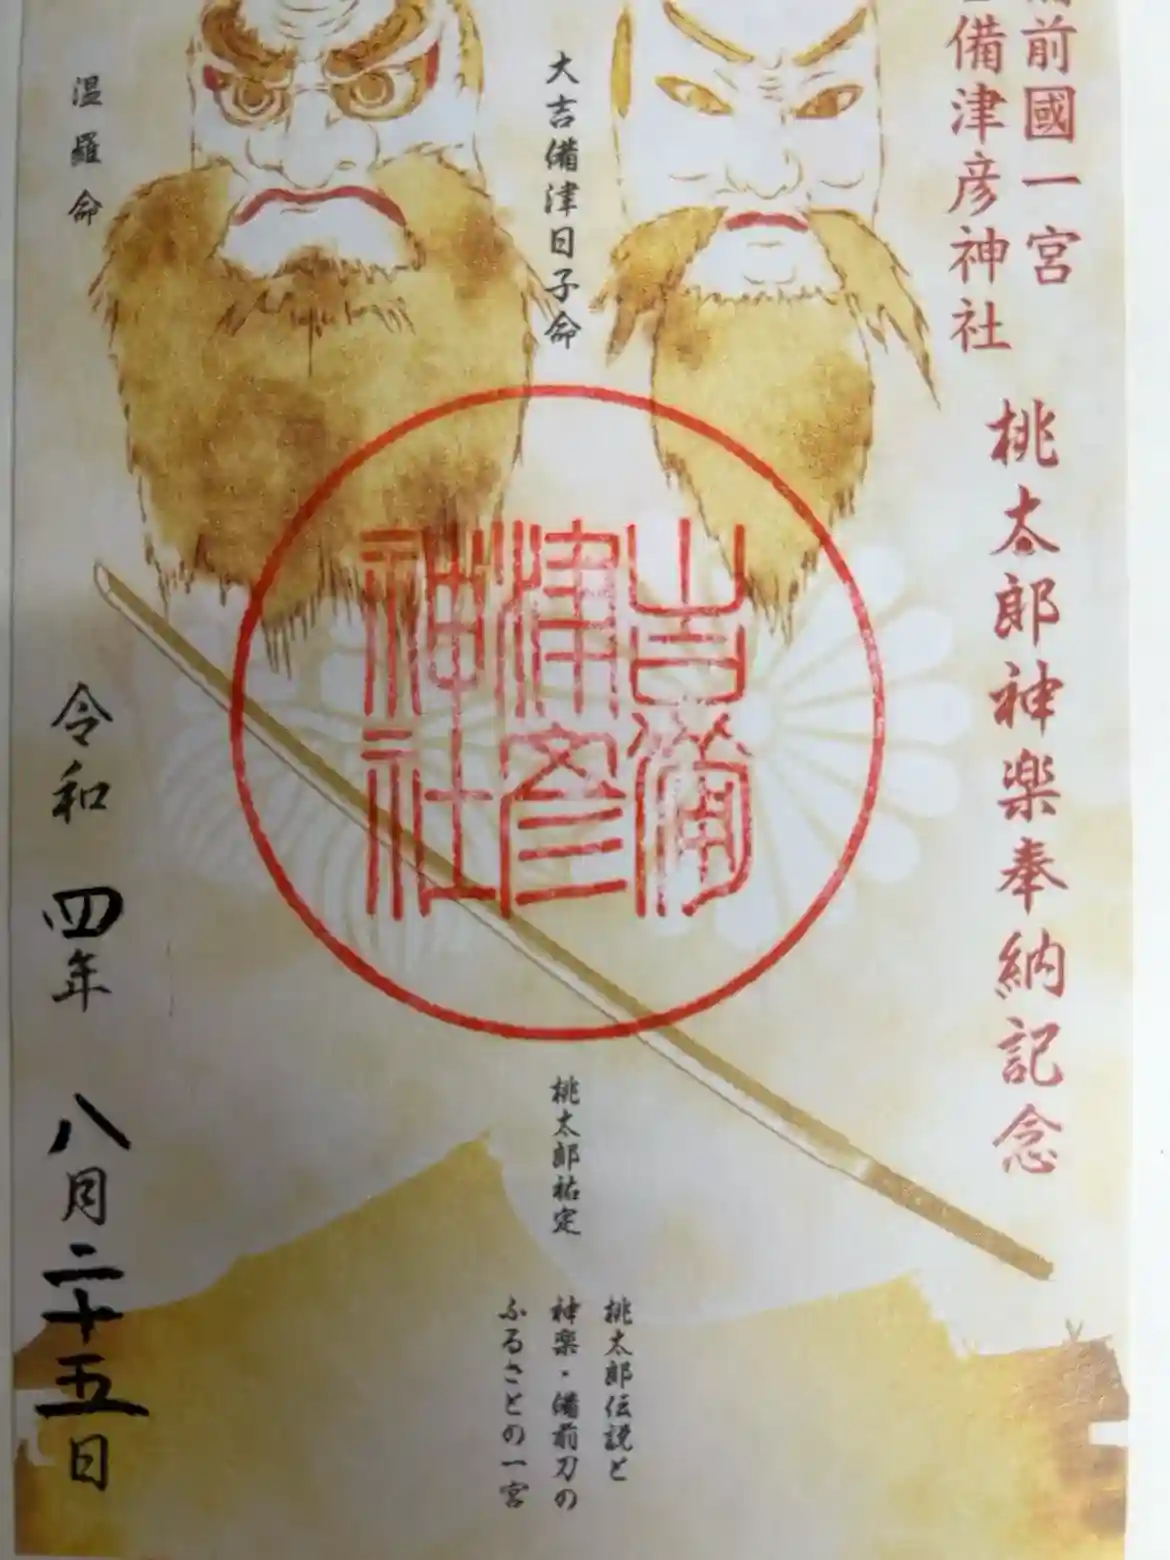 前國一宮
備津彦神社
桃太郎神楽奉納記念
大吉備津日子命
温羅命
吉備
津彦
神社
桃太郎祐定
桃太郎伝説と
神楽・備前刀の
ふるさとの一宮
令和四年八月二十五日